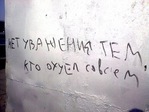 НЕТ УВАЖЕНИЯ ТЕМ,
КТО ОХУЕЛ СОВСЕМ